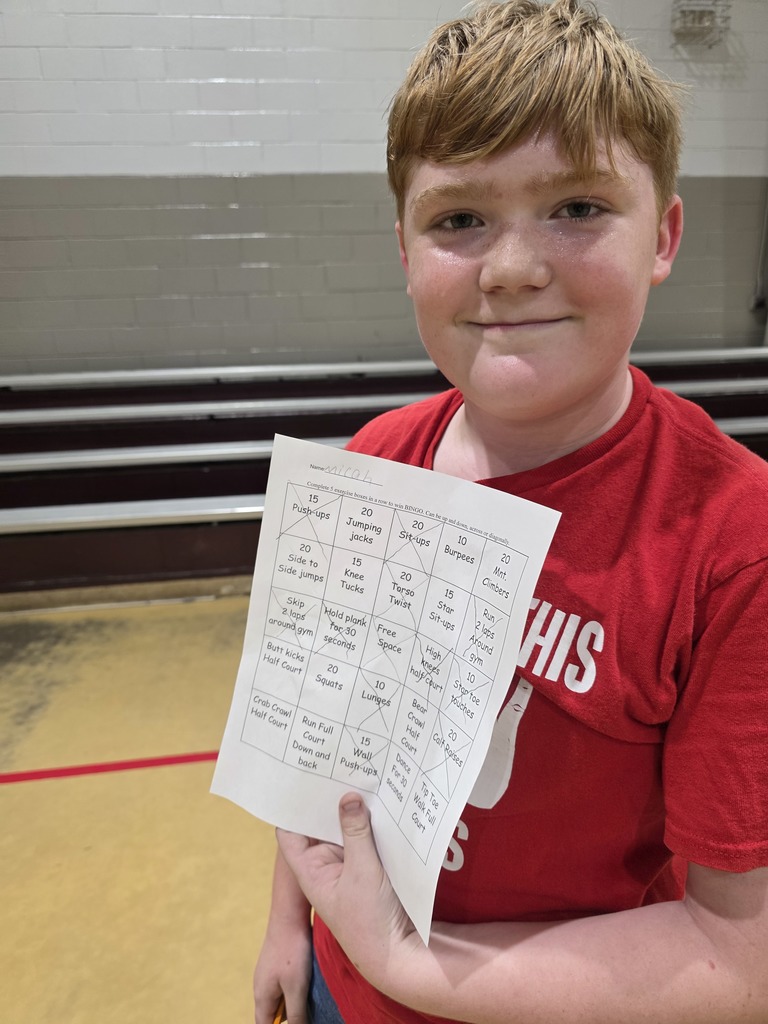 Name: micah
Complete 5 exercise boxes in a row to win BINGO. Can be up and down, across or diagonally.
15
Push-ups
20
Jumping
jacks
20
Sit-ups
10
Burpees
20
Mnt.
Climbers
20
Side to
Side jumps
15
Knee
Tucks
20
Torso
Twist
15
Star
Sit-ups
Run
2 laps
Around
gym
Skip
2 laps
around gym
Hold plank
for 30
seconds
Free
Space
High
knees
half court
10
Star toe
touches
Butt kicks
Half Court
20
Squats
10
Lunges
Bear
Crawl
Half
Court
20
Calf Raises
Crab Crawl
Half Court
Run Full
Court
Down and
back
15
Wall
Push-ups
Dance
For 30
seconds
Tip Toe
Walk Full
Court
THIS
S